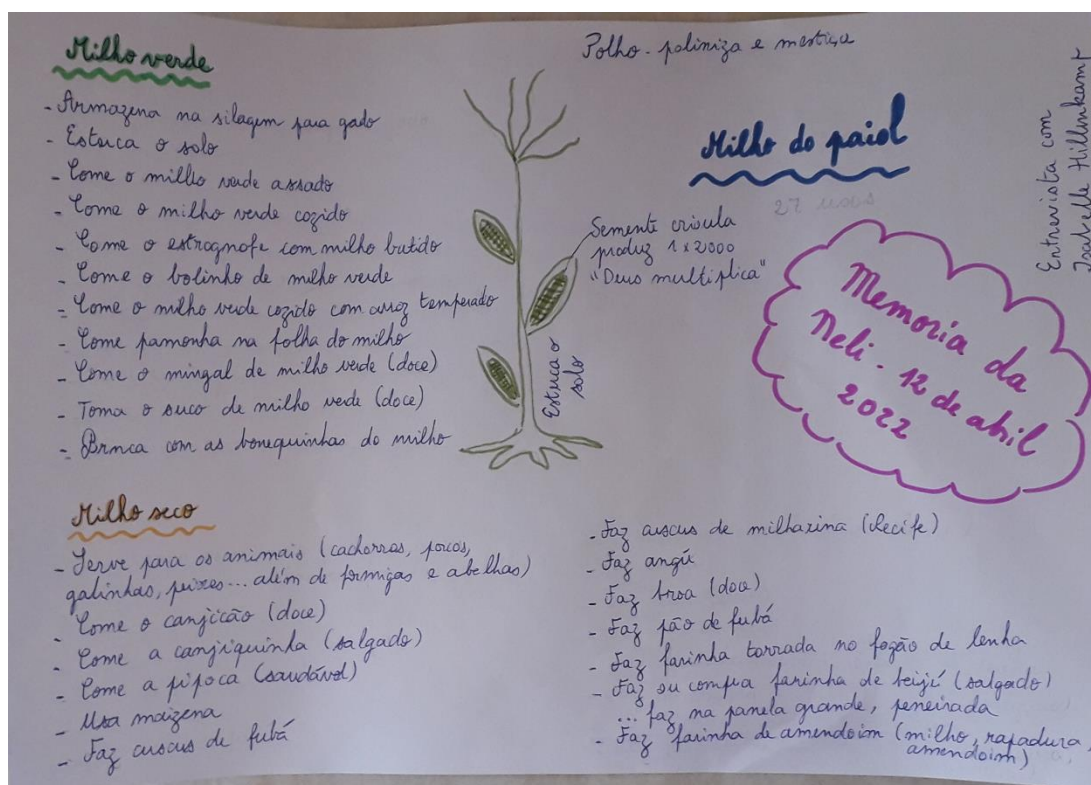 Milho verde
- Armazena na silagem para gado
- Estuca o solo
- Come o milho verde assado
- Come o milho verde cozido
- Come o estrognofe com milho batido
- Come o bolinho de milho verde
- Come o milho verde cozido com arroz temperado
- Come pamonha na folha do milho
- Come o mingal de milho verde (doce)
- Toma o suco de milho verde (doce)
- Brinca com as bonequinhas do milho
Polho - poliniza e mestiça
Milho do paiol
Semente crioula
produz 1x2000
"Deus multiplica"
Estuca o
solo
Entrevista com
Isabelle Hillenkamp
Memoria da
Neli - 12 de abril
2022
Milho seco
- Serve para os animais (cachorras, porcos,
galinhas, peixes... além de formigas e abelhas)
- Come o canjicão (doce)
- Come a canjiquinha (salgado)
- Come a pipoca (saudável)
- Usa maizena
- Faz cuscus de fubá
- Faz cuscus de milharina (Recife)
- Faz angú
- Faz broa (doce)
- Faz pão de fubá
- Faz farinha torrada no fogão de lenha
- Faz ou compra farinha de beijú (salgado)
... faz na panela grande, peneirada
- Faz farinha de amendoim (milho, rapadura,
amendoim)